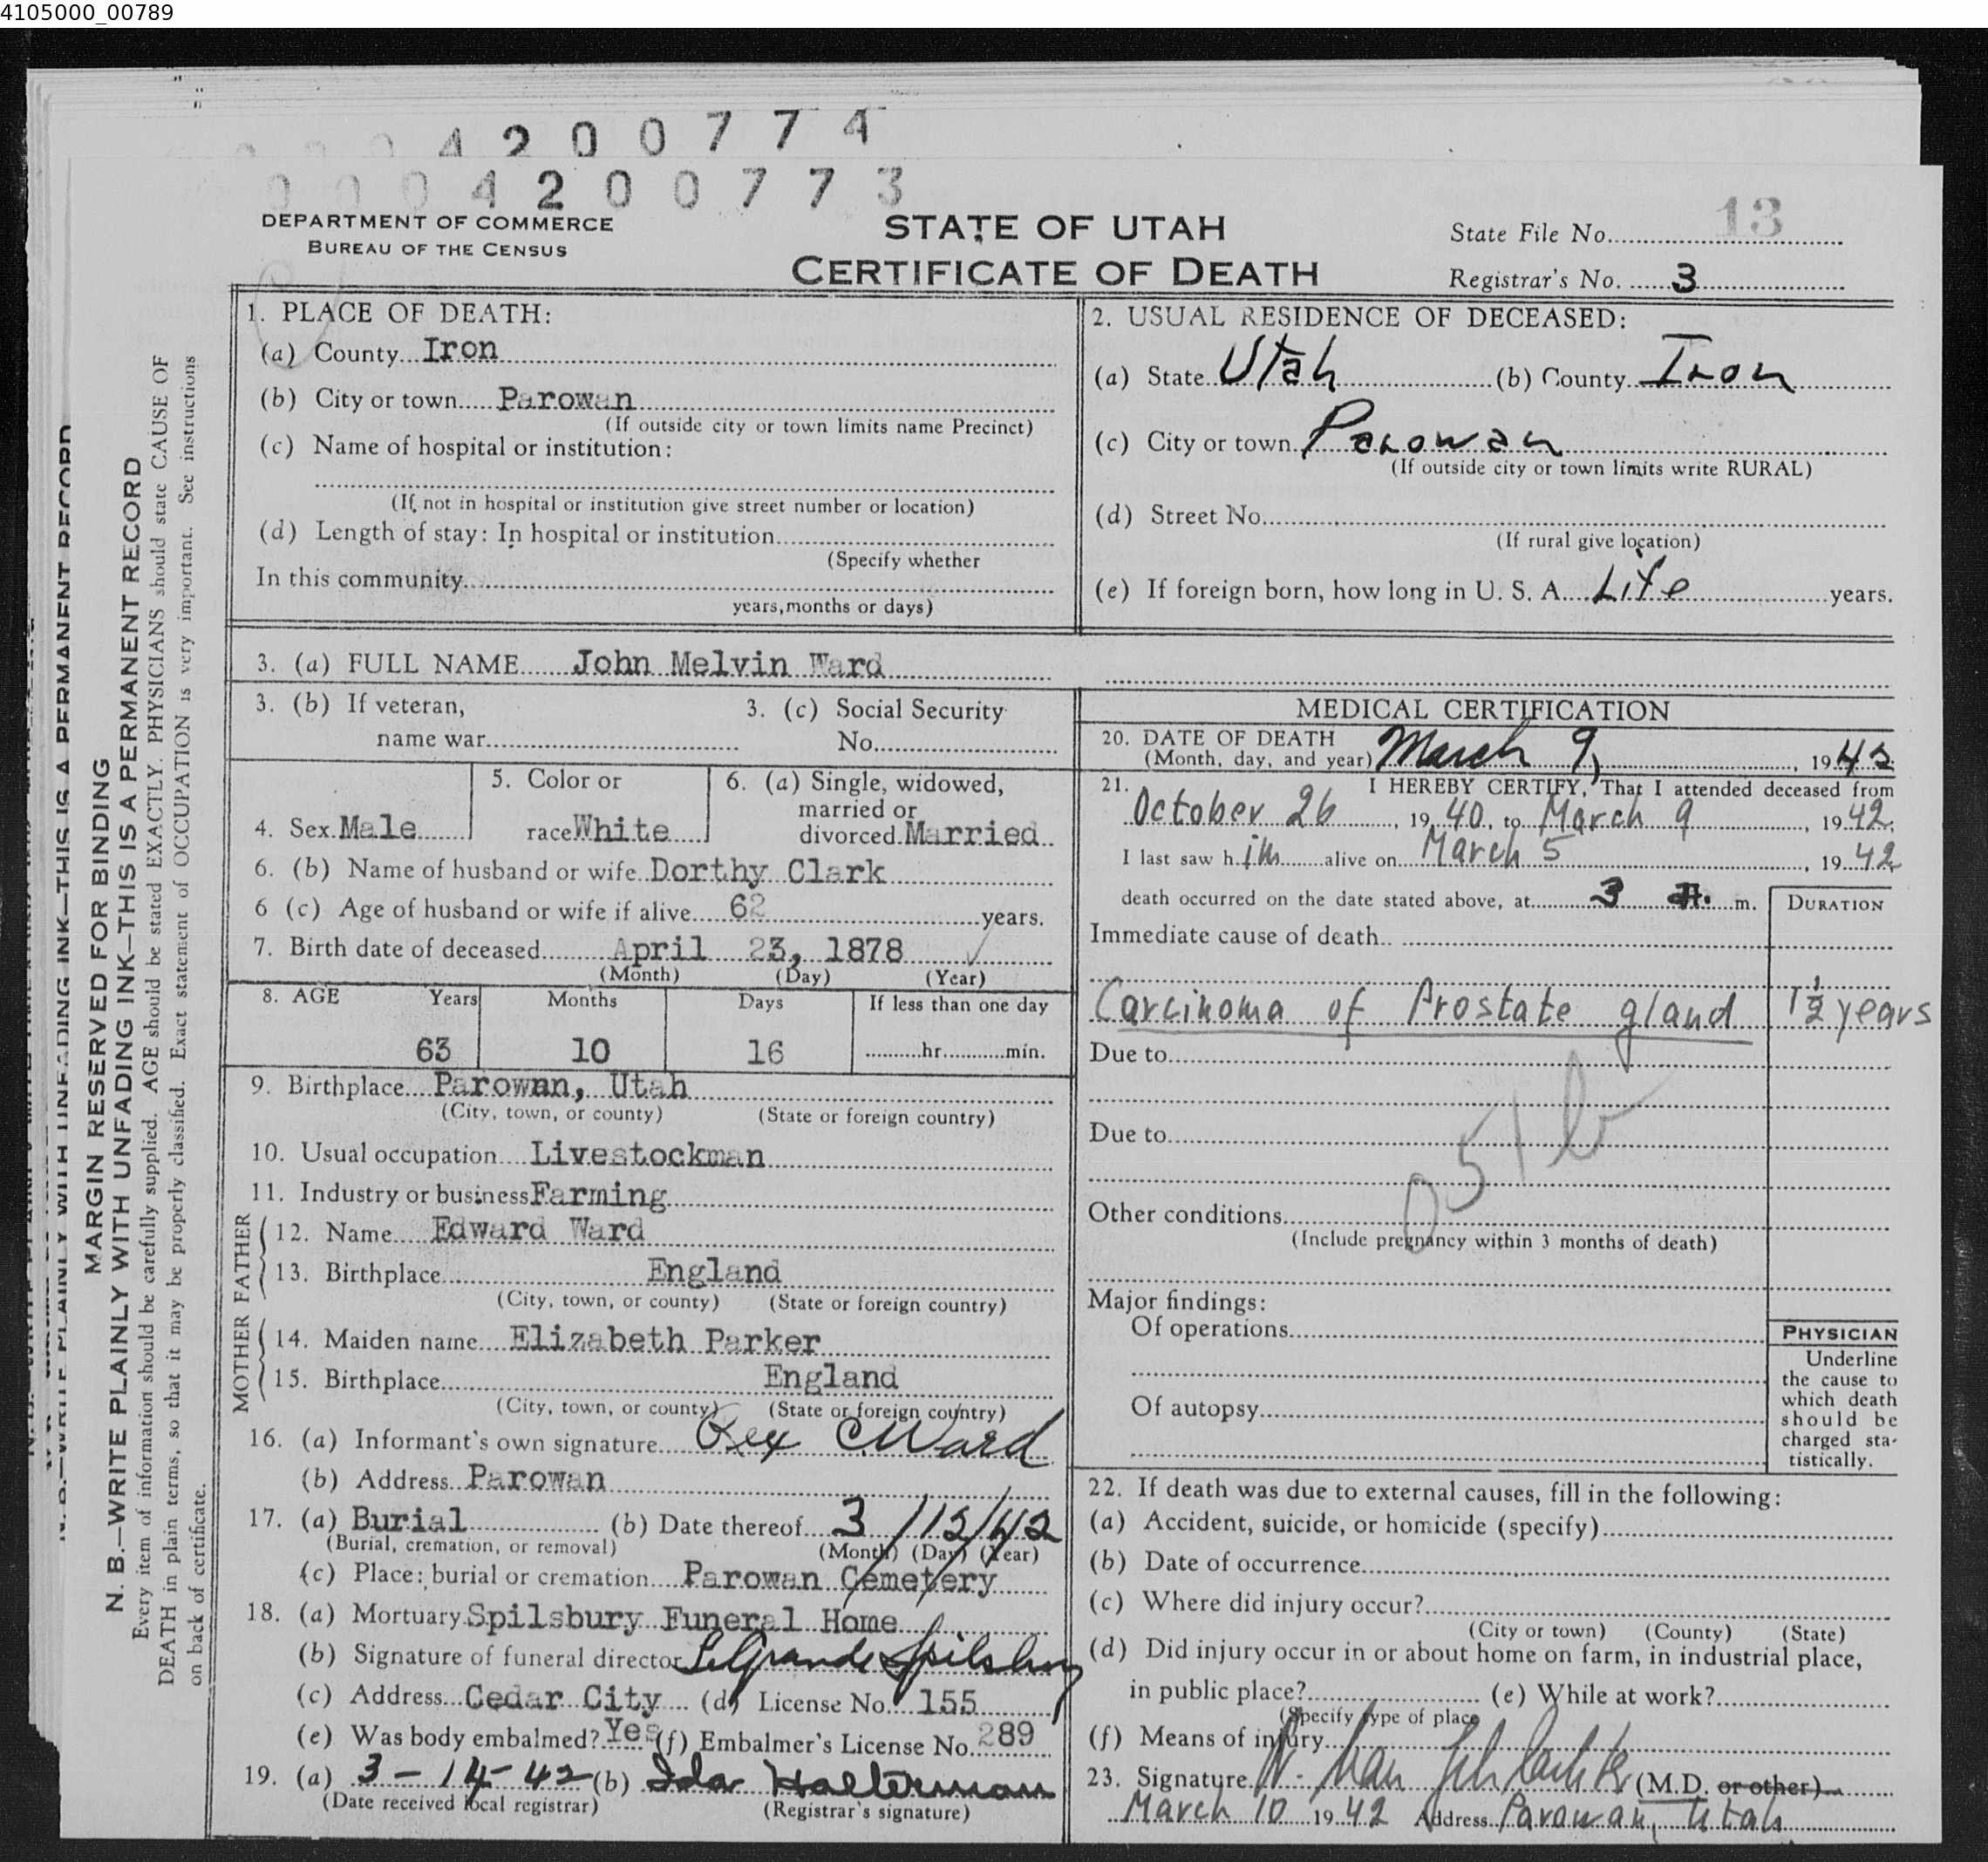 4105000_00789
4 2 0 0 7 7 4
0 0 0 4 2 0 0 7 7 3
DEPARTMENT OF COMMERCE
BUREAU OF THE CENSUS
STATE OF UTAH
CERTIFICATE OF DEATH
State File No. 13
Registrar's No. 3
MARGIN RESERVED FOR BINDING
N. B.—WRITE PLAINLY WITH UNFADING INK—THIS IS A PERMANENT RECORD
Every item of information should be carefully supplied. AGE should be stated EXACTLY. PHYSICIANS should state CAUSE OF
DEATH in plain terms, so that it may be properly classified. Exact statement of OCCUPATION is very important. See instructions
on back of certificate.
1. PLACE OF DEATH:
(a) County Iron
(b) City or town Parowan
(If outside city or town limits name Precinct)
(c) Name of hospital or institution:
(If not in hospital or institution give street number or location)
(d) Length of stay: In hospital or institution
(Specify whether
In this community
years, months or days)
2. USUAL RESIDENCE OF DECEASED:
(a) State Utah (b) County Iron
(c) City or town Parowan
(If outside city or town limits write RURAL)
(d) Street No.
(If rural give location)
(e) If foreign born, how long in U. S. A. Life years.
3. (a) FULL NAME John Melvin Ward
3. (b) If veteran,
name war
3. (c) Social Security
No.
4. Sex Male
5. Color or
race White
6. (a) Single, widowed,
married or
divorced Married
6. (b) Name of husband or wife Dorthy Clark
6 (c) Age of husband or wife if alive 62 years.
7. Birth date of deceased April 23, 1878
(Month) (Day) (Year)
8. AGE Years Months Days If less than one day
63 10 16 hr. min.
9. Birthplace Parowan, Utah
(City, town, or county) (State or foreign country)
10. Usual occupation Livestockman
11. Industry or business Farming
FATHER
12. Name Edward Ward
13. Birthplace England
(City, town, or county) (State or foreign country)
MOTHER
14. Maiden name Elizabeth Parker
15. Birthplace England
(City, town, or county) (State or foreign country)
16. (a) Informant's own signature Rex C Ward
(b) Address Parowan
17. (a) Burial (b) Date thereof 3/12/42
(Burial, cremation, or removal) (Month) (Day) (Year)
(c) Place: burial or cremation Parowan Cemetery
18. (a) Mortuary Spilsbury Funeral Home
(b) Signature of funeral director LeGrande Spilsbury
(c) Address Cedar City (d) License No. 155
(e) Was body embalmed? Yes (f) Embalmer's License No. 289
19. (a) 3-14-42 (b) Ida Halterman
(Date received local registrar) (Registrar's signature)
MEDICAL CERTIFICATION
20. DATE OF DEATH
(Month, day, and year) March 9, 1942
21. I HEREBY CERTIFY, That I attended deceased from
October 26, 1940, to March 9, 1942;
I last saw him alive on March 5, 1942
death occurred on the date stated above, at 3 a. m.
DURATION
Immediate cause of death
Carcinoma of Prostate gland 1½ years
Due to
Due to
051b
Other conditions
(Include pregnancy within 3 months of death)
Major findings:
Of operations
Of autopsy
PHYSICIAN
Underline
the cause to
which death
should be
charged sta-
tistically.
22. If death was due to external causes, fill in the following:
(a) Accident, suicide, or homicide (specify)
(b) Date of occurrence
(c) Where did injury occur?
(City or town) (County) (State)
(d) Did injury occur in or about home on farm, in industrial place,
in public place? (e) While at work?
(Specify type of place
(f) Means of injury
23. Signature (M.D. or other)
March 10 1942 Address Parowan, Utah